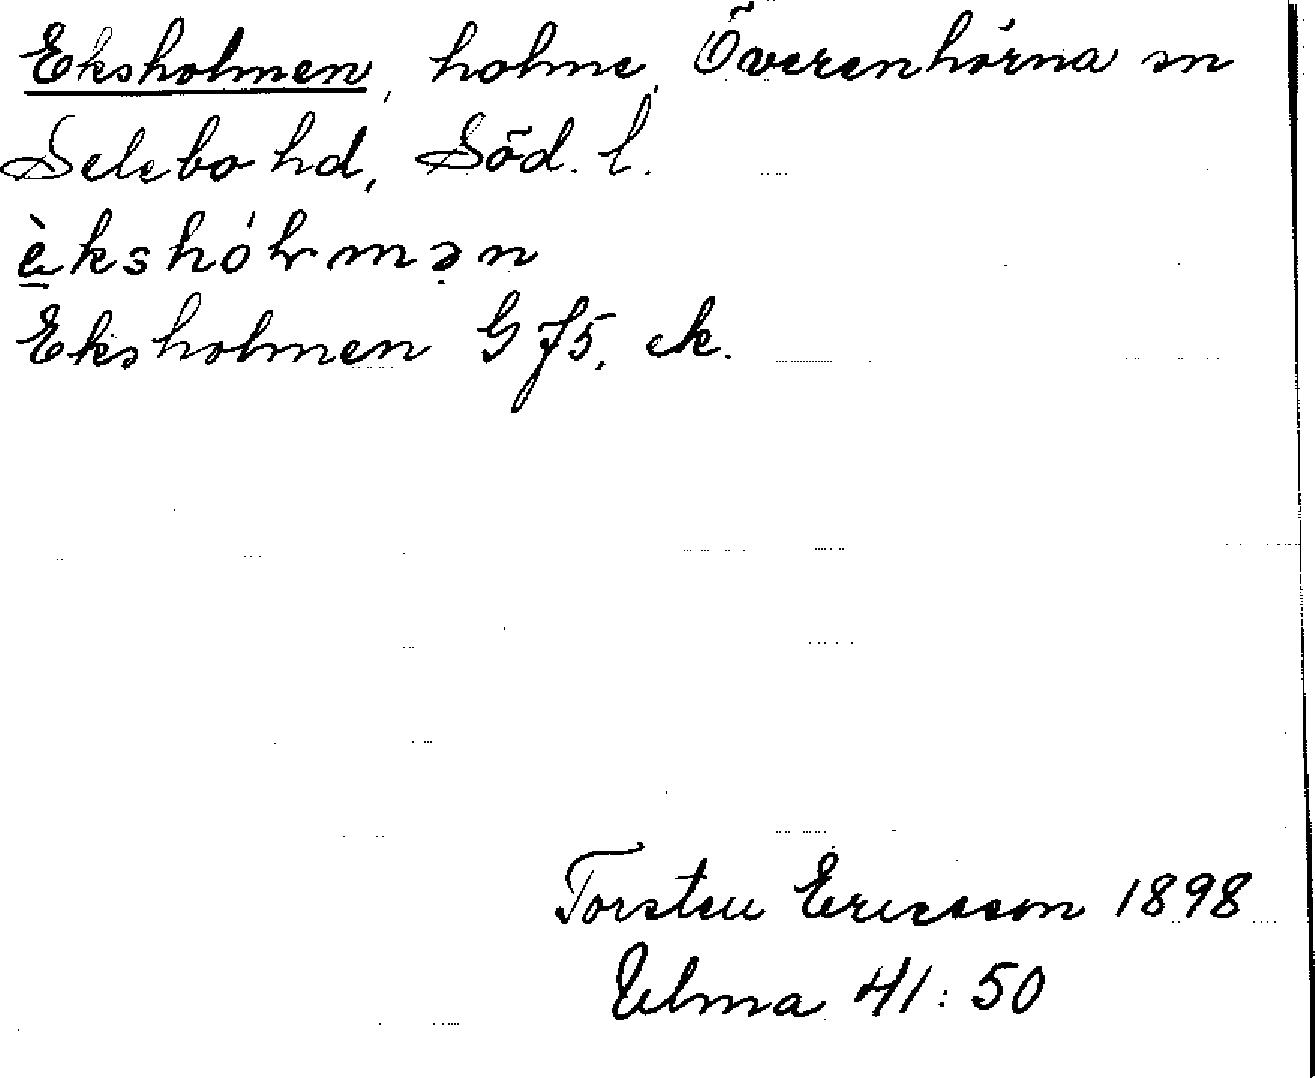 Eksholmen, holme, Överenhörna sn
Selebo hd, Söd. l.
Eksholmen G f5, ek.
Torsten Ericsson 1898
Ulma 41:50